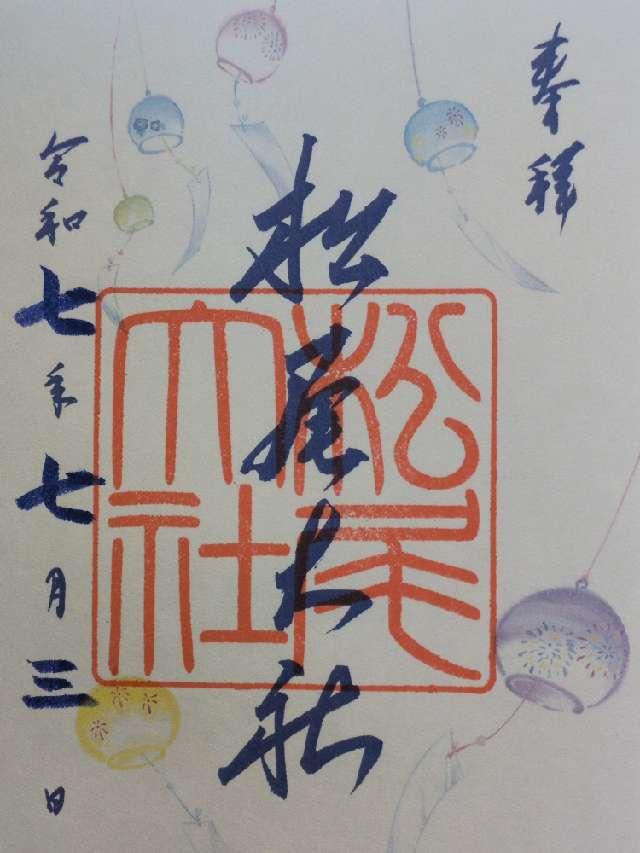 奉拝
松尾大社
松尾大社
令和七年七月三日